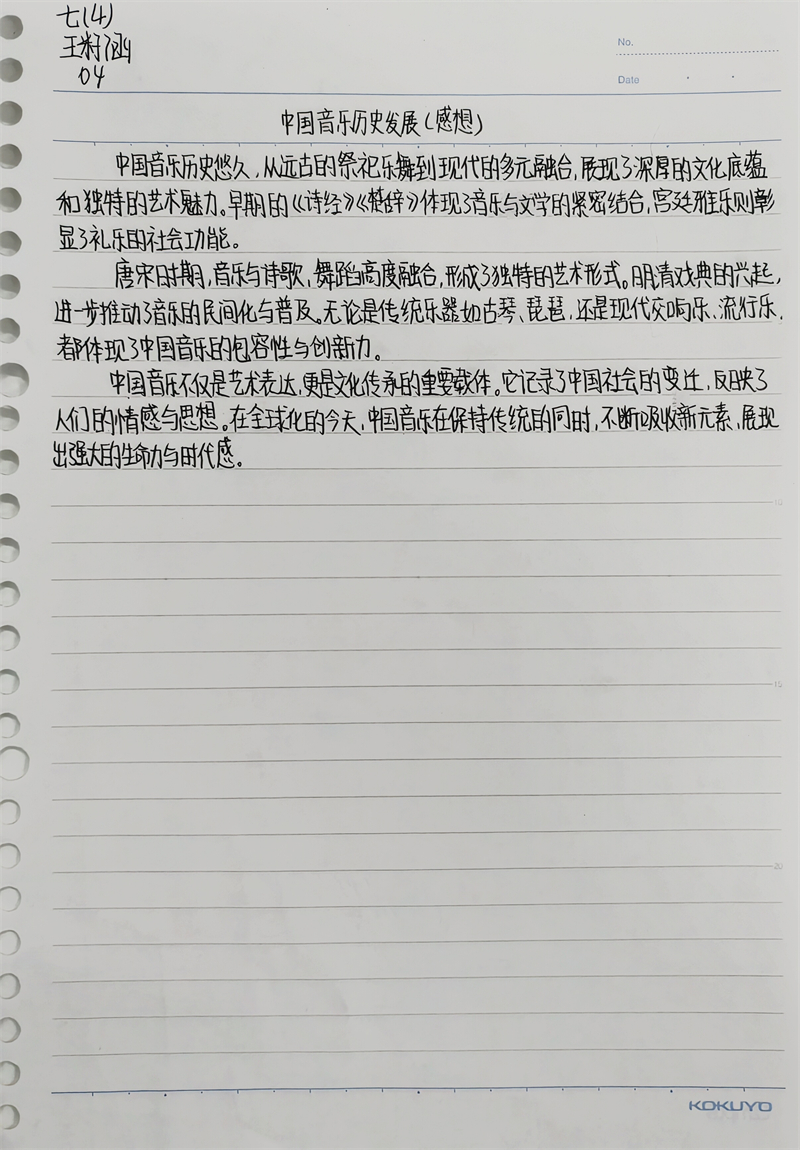 七(4)
王籽涵
04
No.
Date
中国音乐历史发展(感想)
中国音乐历史悠久,从远古的祭祀乐舞到现代的多元融合,展现了深厚的文化底蕴
和独特的艺术魅力。早期的《诗经》《楚辞》体现了音乐与文学的紧密结合,宫廷雅乐则彰
显了礼乐的社会功能。
唐宋时期,音乐与诗歌、舞蹈高度融合,形成了独特的艺术形式。明清戏典的兴起,
进一步推动了音乐的民间化与普及。无论是传统乐器如古琴、琵琶,还是现代交响乐、流行乐,
都体现了中国音乐的包容性与创新力。
中国音乐不仅是艺术表达,更是文化传承的重要载体。它记录了中国社会的变迁,反映了
人们的情感与思想。在全球化的今天,中国音乐在保持传统的同时,不断吸收新元素,展现
出强大的生命力与时代感。
10
15
20
KOKUYO